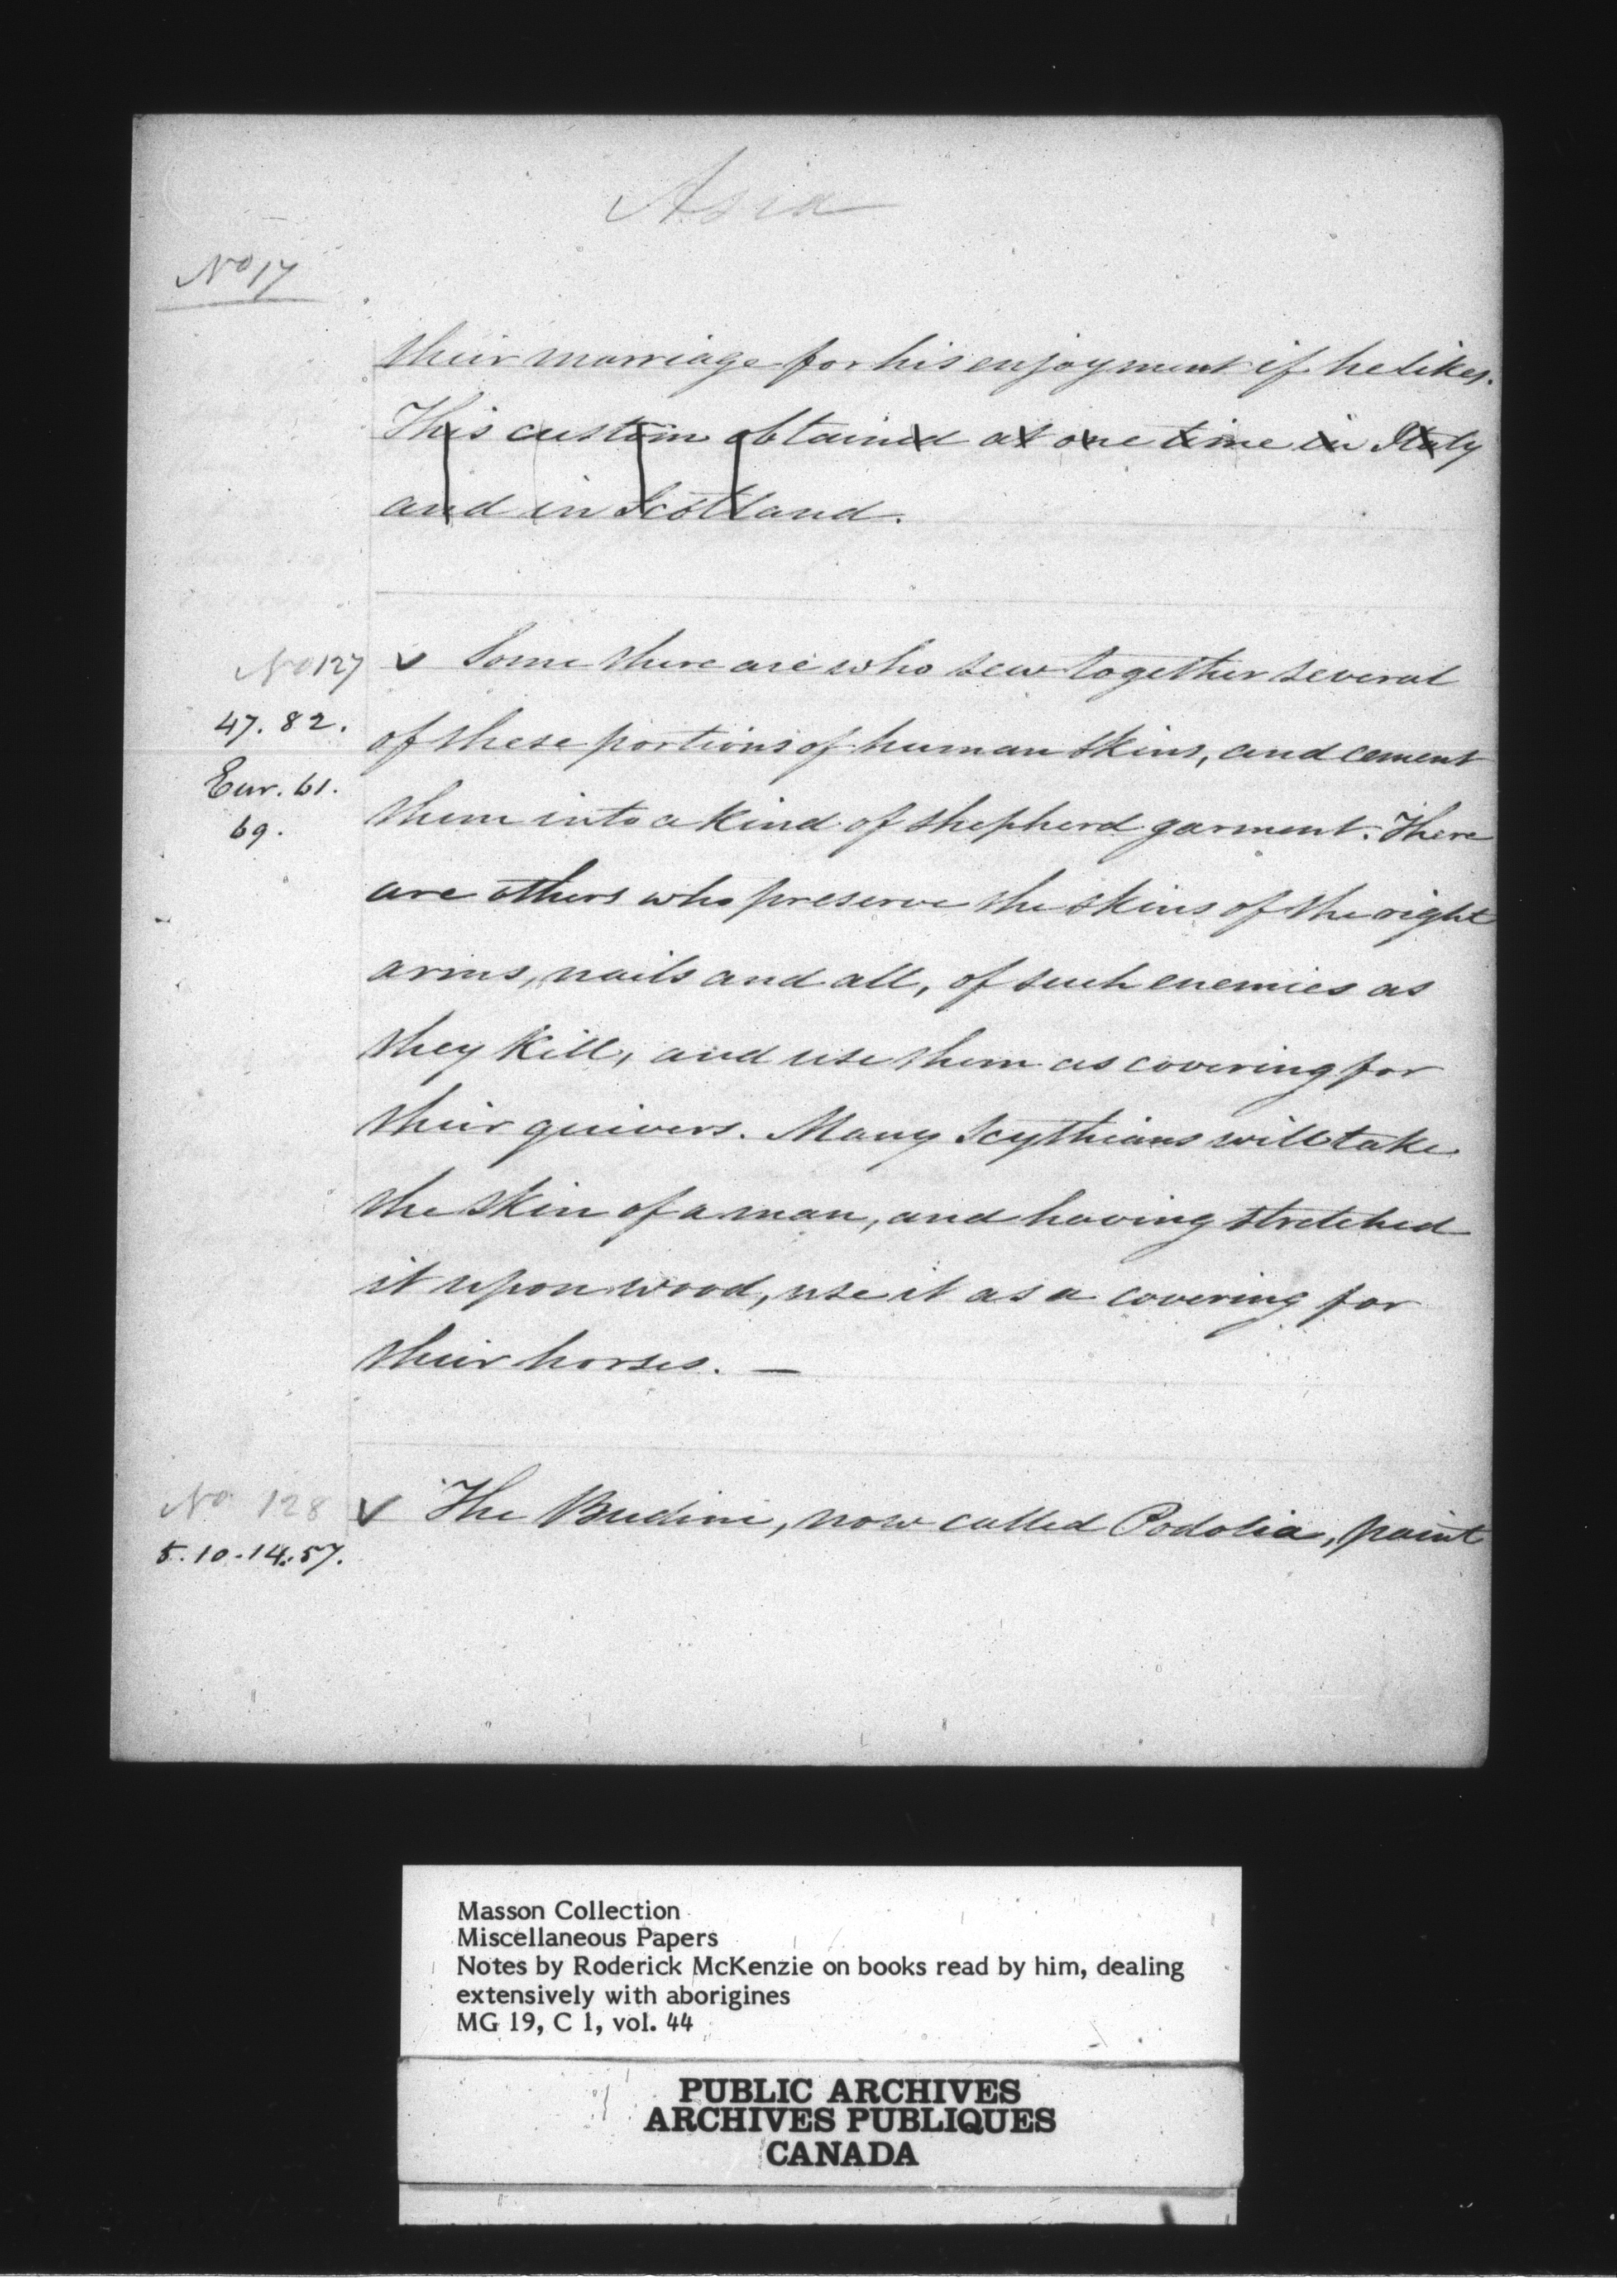 Asia
No 17
their marriage for his enjoyment if he likes.
This custom obtained at one time in Italy
and in Scotland.
No 127 v Some there are who sew together several
47. 82.
of these portions of human skins, and cement
Eur. 61.
them into a kind of shepherd garment. There
69.
are others who preserve the skins of the right
arms, nails and all, of such enemies as
they kill, and use them as covering for
their quivers. Many Scythians will take
the skin of a man, and having stretched
it upon wood, use it as a covering for
their horses. —
No 128 v The Budini, now called Podolia, paint
5. 10. 14. 57.
Masson Collection
Miscellaneous Papers
Notes by Roderick McKenzie on books read by him, dealing
extensively with aborigines
MG 19, C 1, vol. 44
PUBLIC ARCHIVES
ARCHIVES PUBLIQUES
CANADA